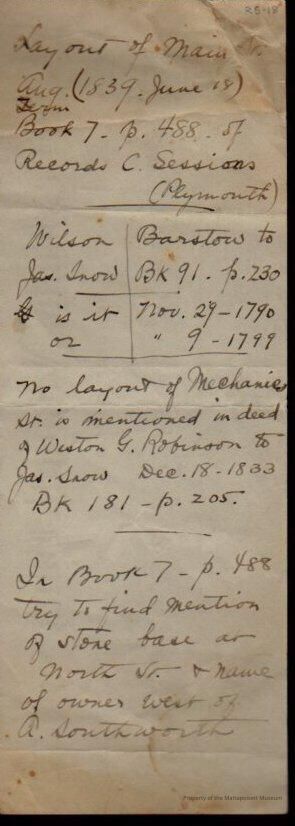 25-18
Layout of Main St.
Aug. (1839. June 18)
Term
Book 7 - p. 488 - of
Records C. Sessions
(Plymouth)
Wilson Barstow to
Jas. Snow BK 91 - p. 230
is it Nov. 29 - 1790
or " 9 - 1799
No layout of Mechanics
St. is mentioned in deed
of Weston G. Robinson to
Jas. Snow Dec. 18 - 1833
BK 181 - p. 205.
In Book 7 - p. 488
try to find mention
of stone base at
North St. & name
of owner west of
A. Southworth
Property of the Mattapoisett Museum